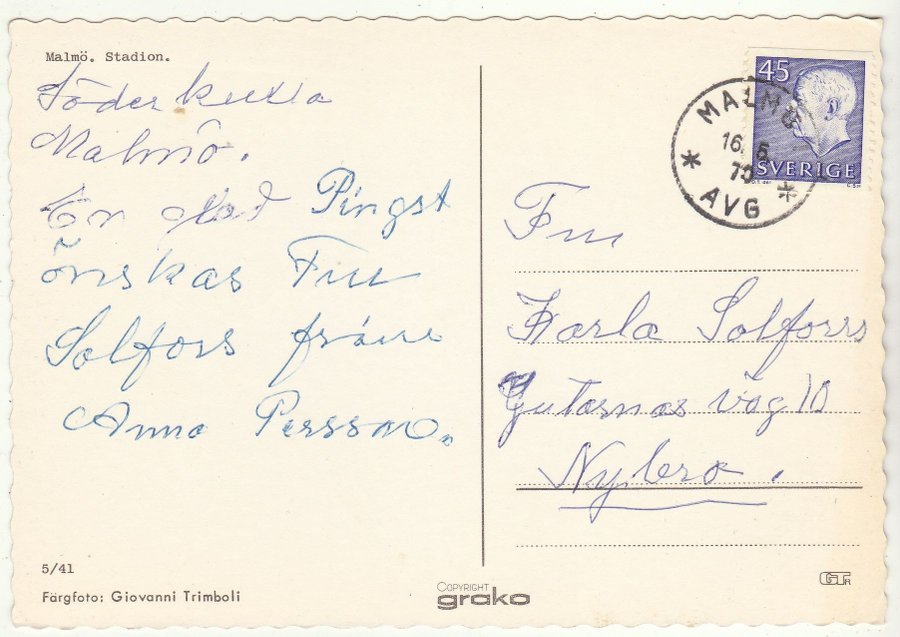 Malmö. Stadion.
Söderkulla
Malmö.
En glad Pingst
önskas Fru
Solfors från
Anna Persson.
5/41
Färgfoto: Giovanni Trimboli
COPYRIGHT
grako
45
SVERIGE
MALMÖ
16. 5
70
* *
AVG
Fru
Karla Solfors
Gutarnas väg 10
Nybro.
GT